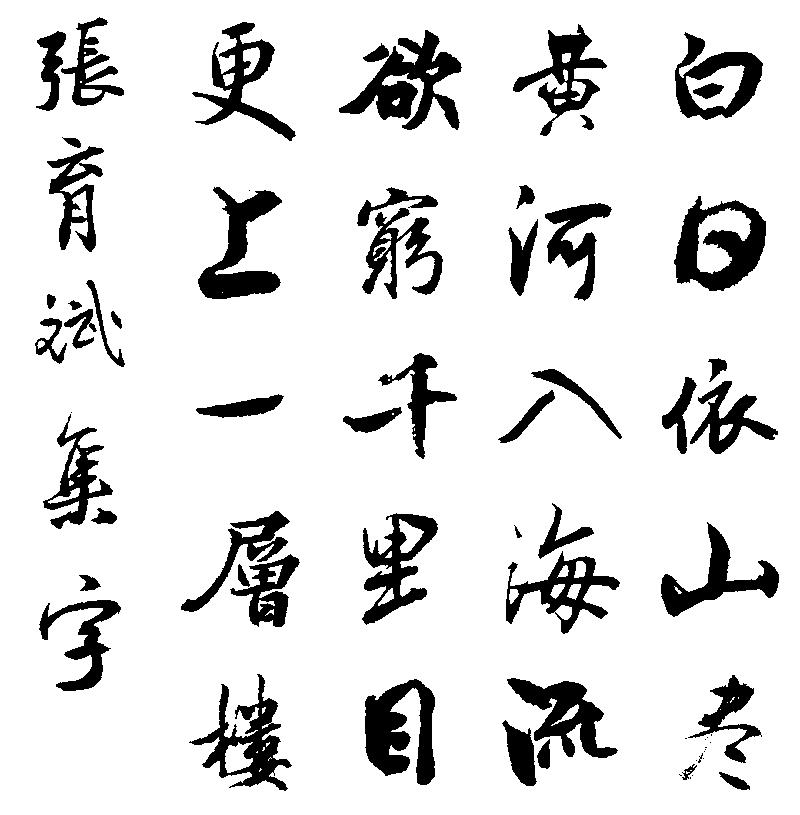 白日依山尽
黃河入海流
欲窮千里目
更上一層樓
張育斌集字